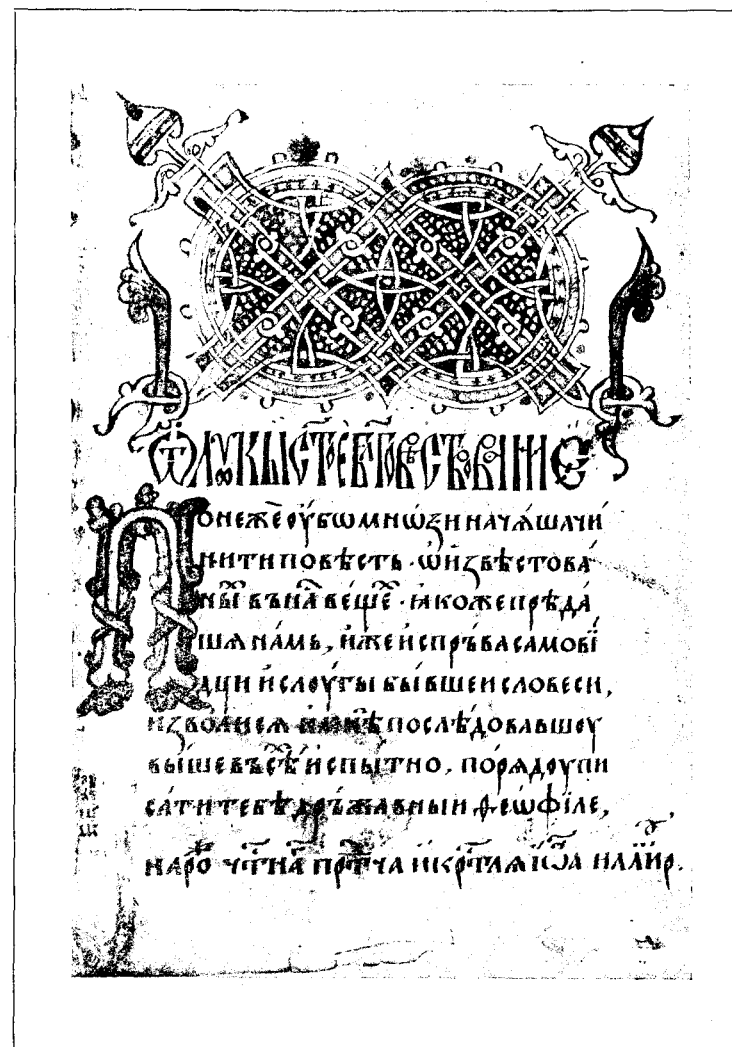 Ѿ лꙋкы ст҃ое еѵⷢ҇говѣствованїе
Понеже оубѡ мнѡзи начѧша чи
нити повѣсть · ѡ извѣствова
ныⷯ въ наⷭ҇ вещеⷯ · ꙗкоже прѣда
шѧ намь, иже испръва самови
дци и слоугы бывшеи словеси,
изволисѧ и мнѣ послѣдовавшоу
выше въсѣⷯ испытно, порѧдоу пи
сати тебѣ дръжавныи феѡфіле,